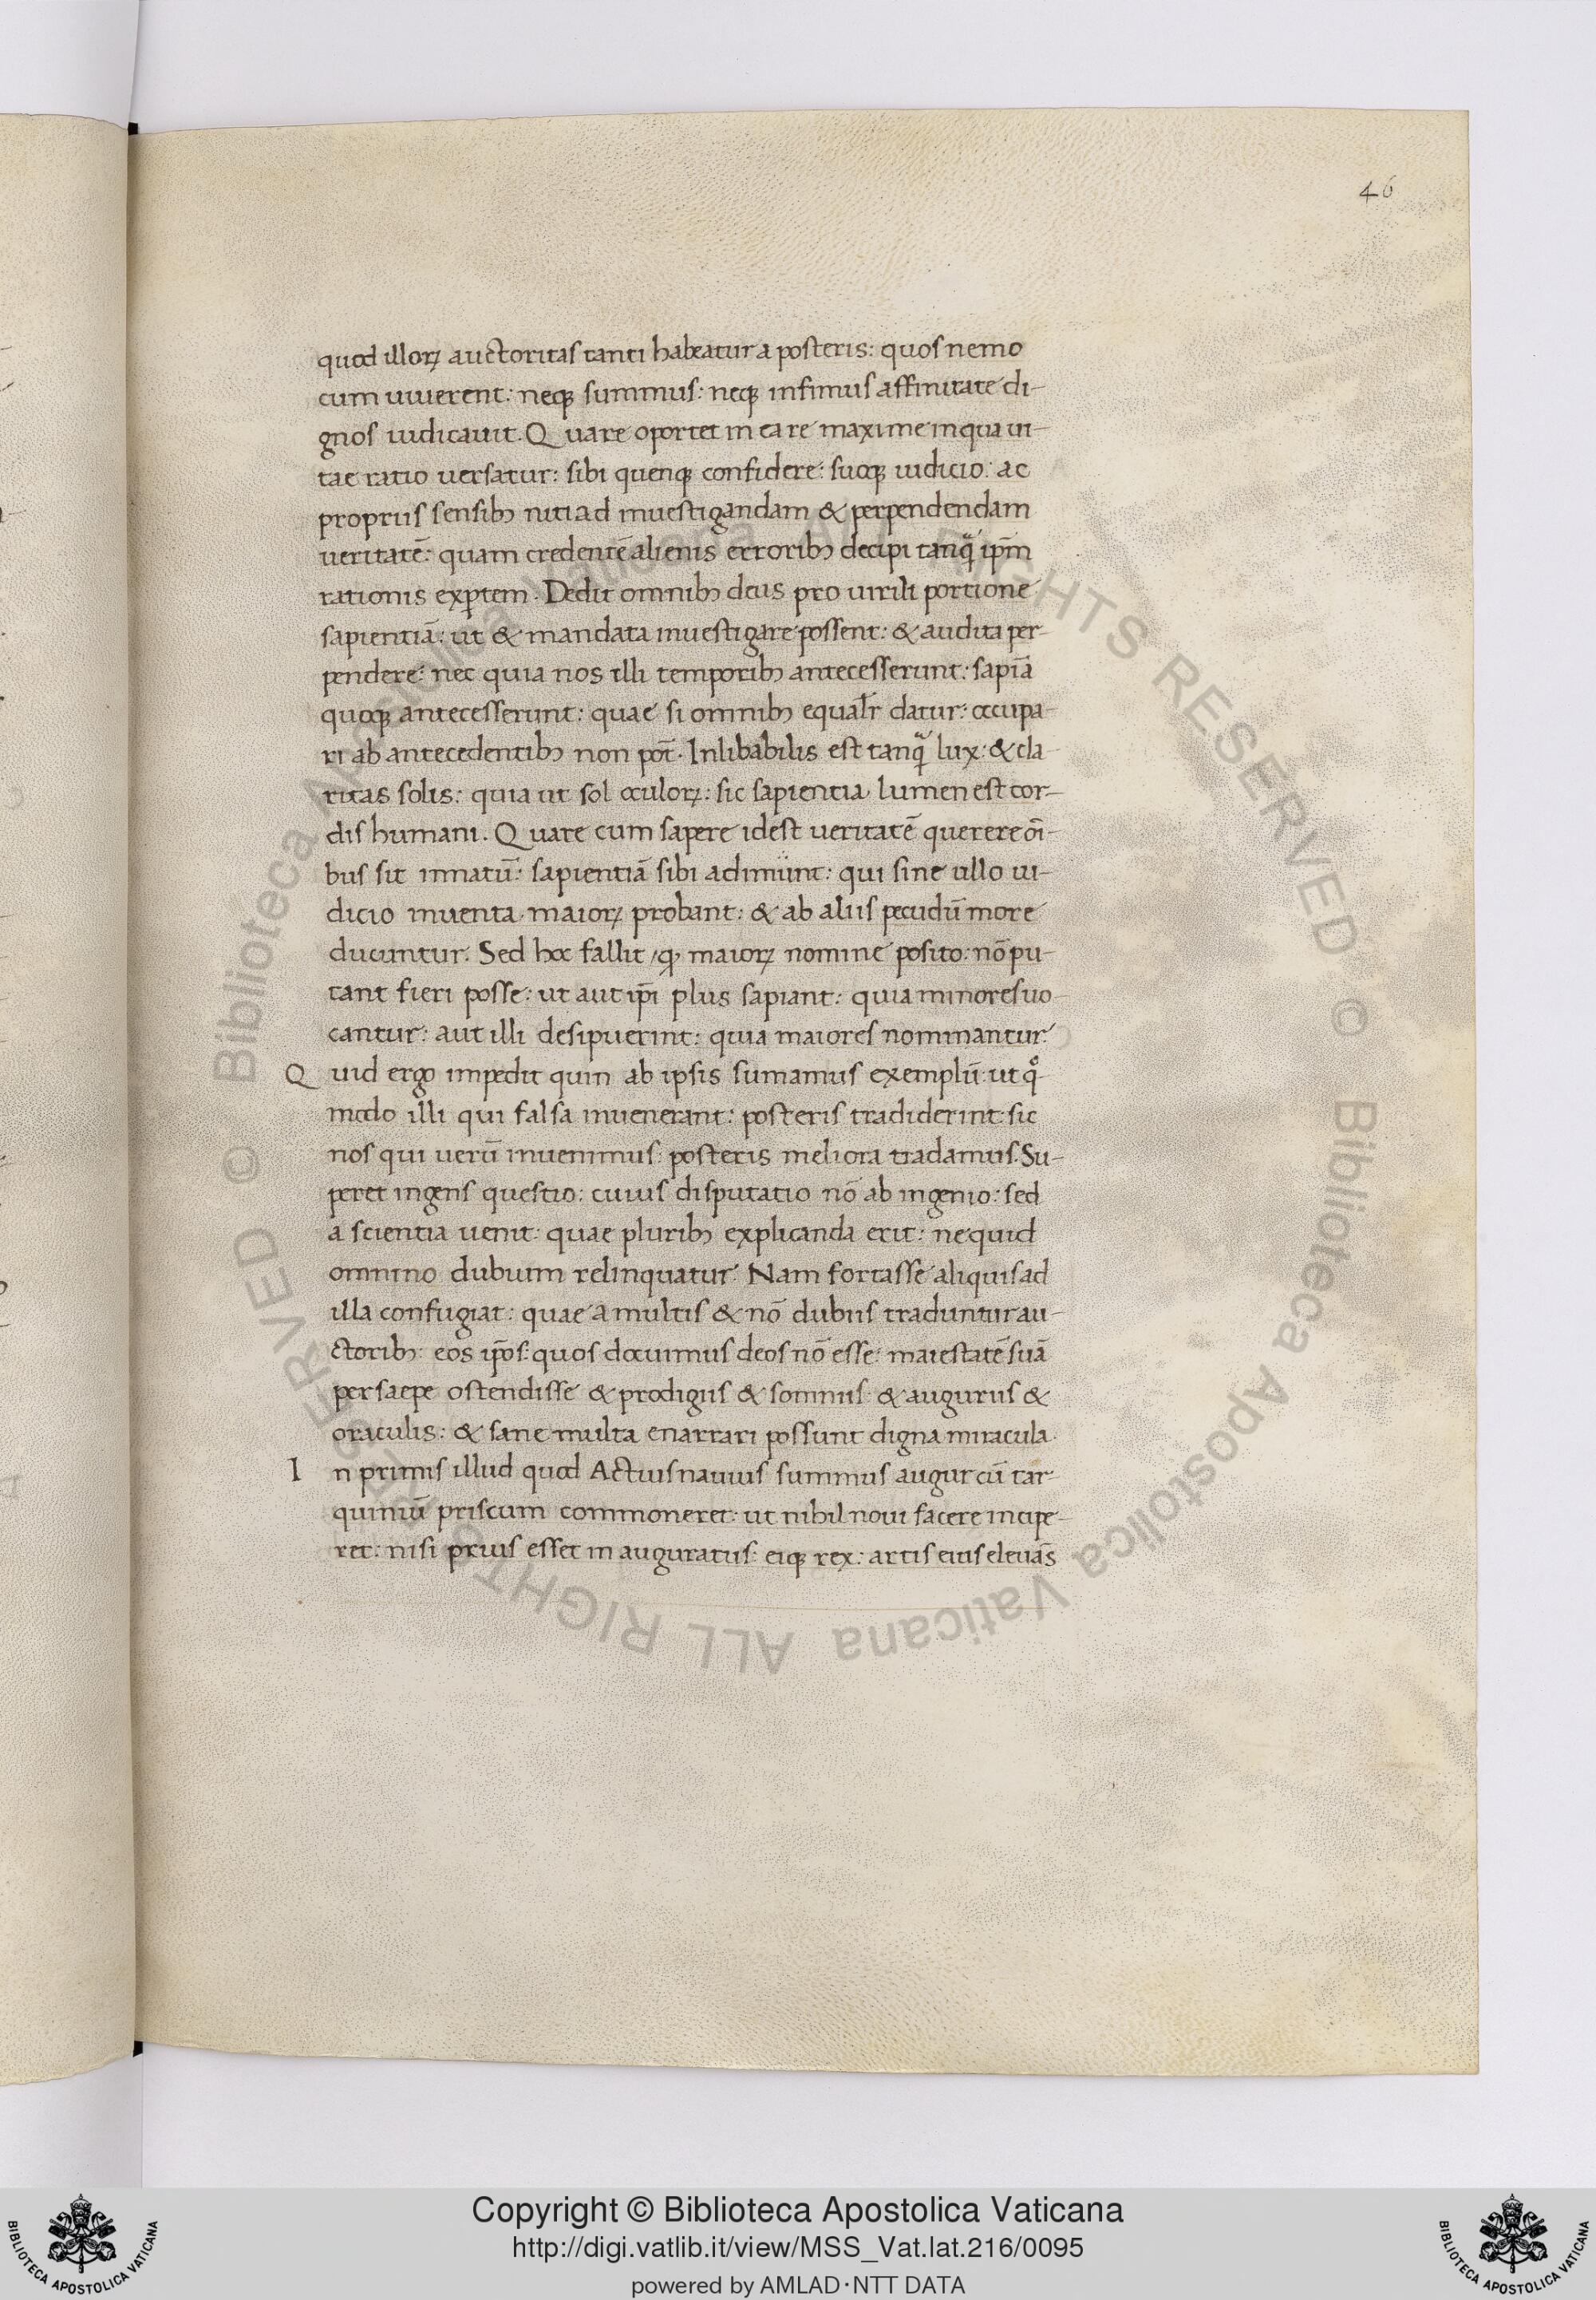 46
quod illoꝝ auctoritas tanti habeatur a posteris: quos nemo
cum uiuerent: neqꝫ summus: neqꝫ infimus affinitate di-
gnos iudicauit. Quare oportet in ea re maxime in qua ui-
tae ratio uersatur: sibi quenqꝫ confidere: suoqꝫ iudicio: ac
propriis sensibꝫ niti ad inuestigandam & perpendendam
ueritatē: quam credentē alienis erroribꝫ decipi tanqᷓ ip̄m
rationis expꝑtem. Dedit omnibꝫ deus pro uirili portione
sapientiā: ut & mandata inuestigare possent: & audita per-
pendere: nec quia nos illi temporibꝫ antecesserunt: sapīa
quoqꝫ antecesserunt: quae si omnibꝫ equalr̄ datur: occupa-
ri ab antecedentibꝫ non pōt. Inlibabilis est tanqᷓ lux: & cla-
ritas solis: quia ut sol oculoꝝ: sic sapientia lumen est cor-
dis humani. Quare cum sapere idest ueritatē querere oī-
bus sit innatū: sapientiā sibi adimunt: qui sine ullo iu-
dicio inuenta maioꝝ probant: & ab aliis pecudū more
ducuntur. Sed hoc fallit / ꝙ maioꝝ nomine posito: nō pu-
tant fieri posse: ut aut ip̄i plus sapiant: quia minores uo-
cantur: aut illi desipuerint: quia maiores nominantur.
Quid ergo impedit quin ab ipsis sumamus exemplū: ut qͦ-
modo illi qui falsa inuenerant: posteris tradiderint: sic
nos qui uerū inuenimus: posteris meliora tradamus. Su-
peret ingens questio: cuius disputatio nō ab ingenio: sed
a scientia uenit: quae pluribꝫ explicanda erit: ne quid
omnino dubium relinquatur. Nam fortasse aliquis ad
illa confugiat: quae a multis & nō dubiis traduntur au-
ctoribꝫ: eos ip̄os: quos docuimus deos nō esse: maiestatē suā
persaepe ostendisse & prodigiis & somniis & auguriis &
oraculis: & sane multa enarrari possunt digna miracula.
In primis illud quod Actius nauius summus augur cū tar-
quiniū priscum commoneret: ut nihil noui facere incipe-
ret: nisi prius esset in auguratus: eiqꝫ rex: artis eius eleuās
Copyright © Biblioteca Apostolica Vaticana
http://digi.vatlib.it/view/MSS_Vat.lat.216/0095
powered by AMLAD·NTT DATA
BIBLIOTECA APOSTOLICA VATICANA
BIBLIOTECA APOSTOLICA VATICANA
© Biblioteca Apostolica Vaticana ALL RIGHTS RESERVED © Biblioteca Apostolica Vaticana ALL RIGHTS RESERVED